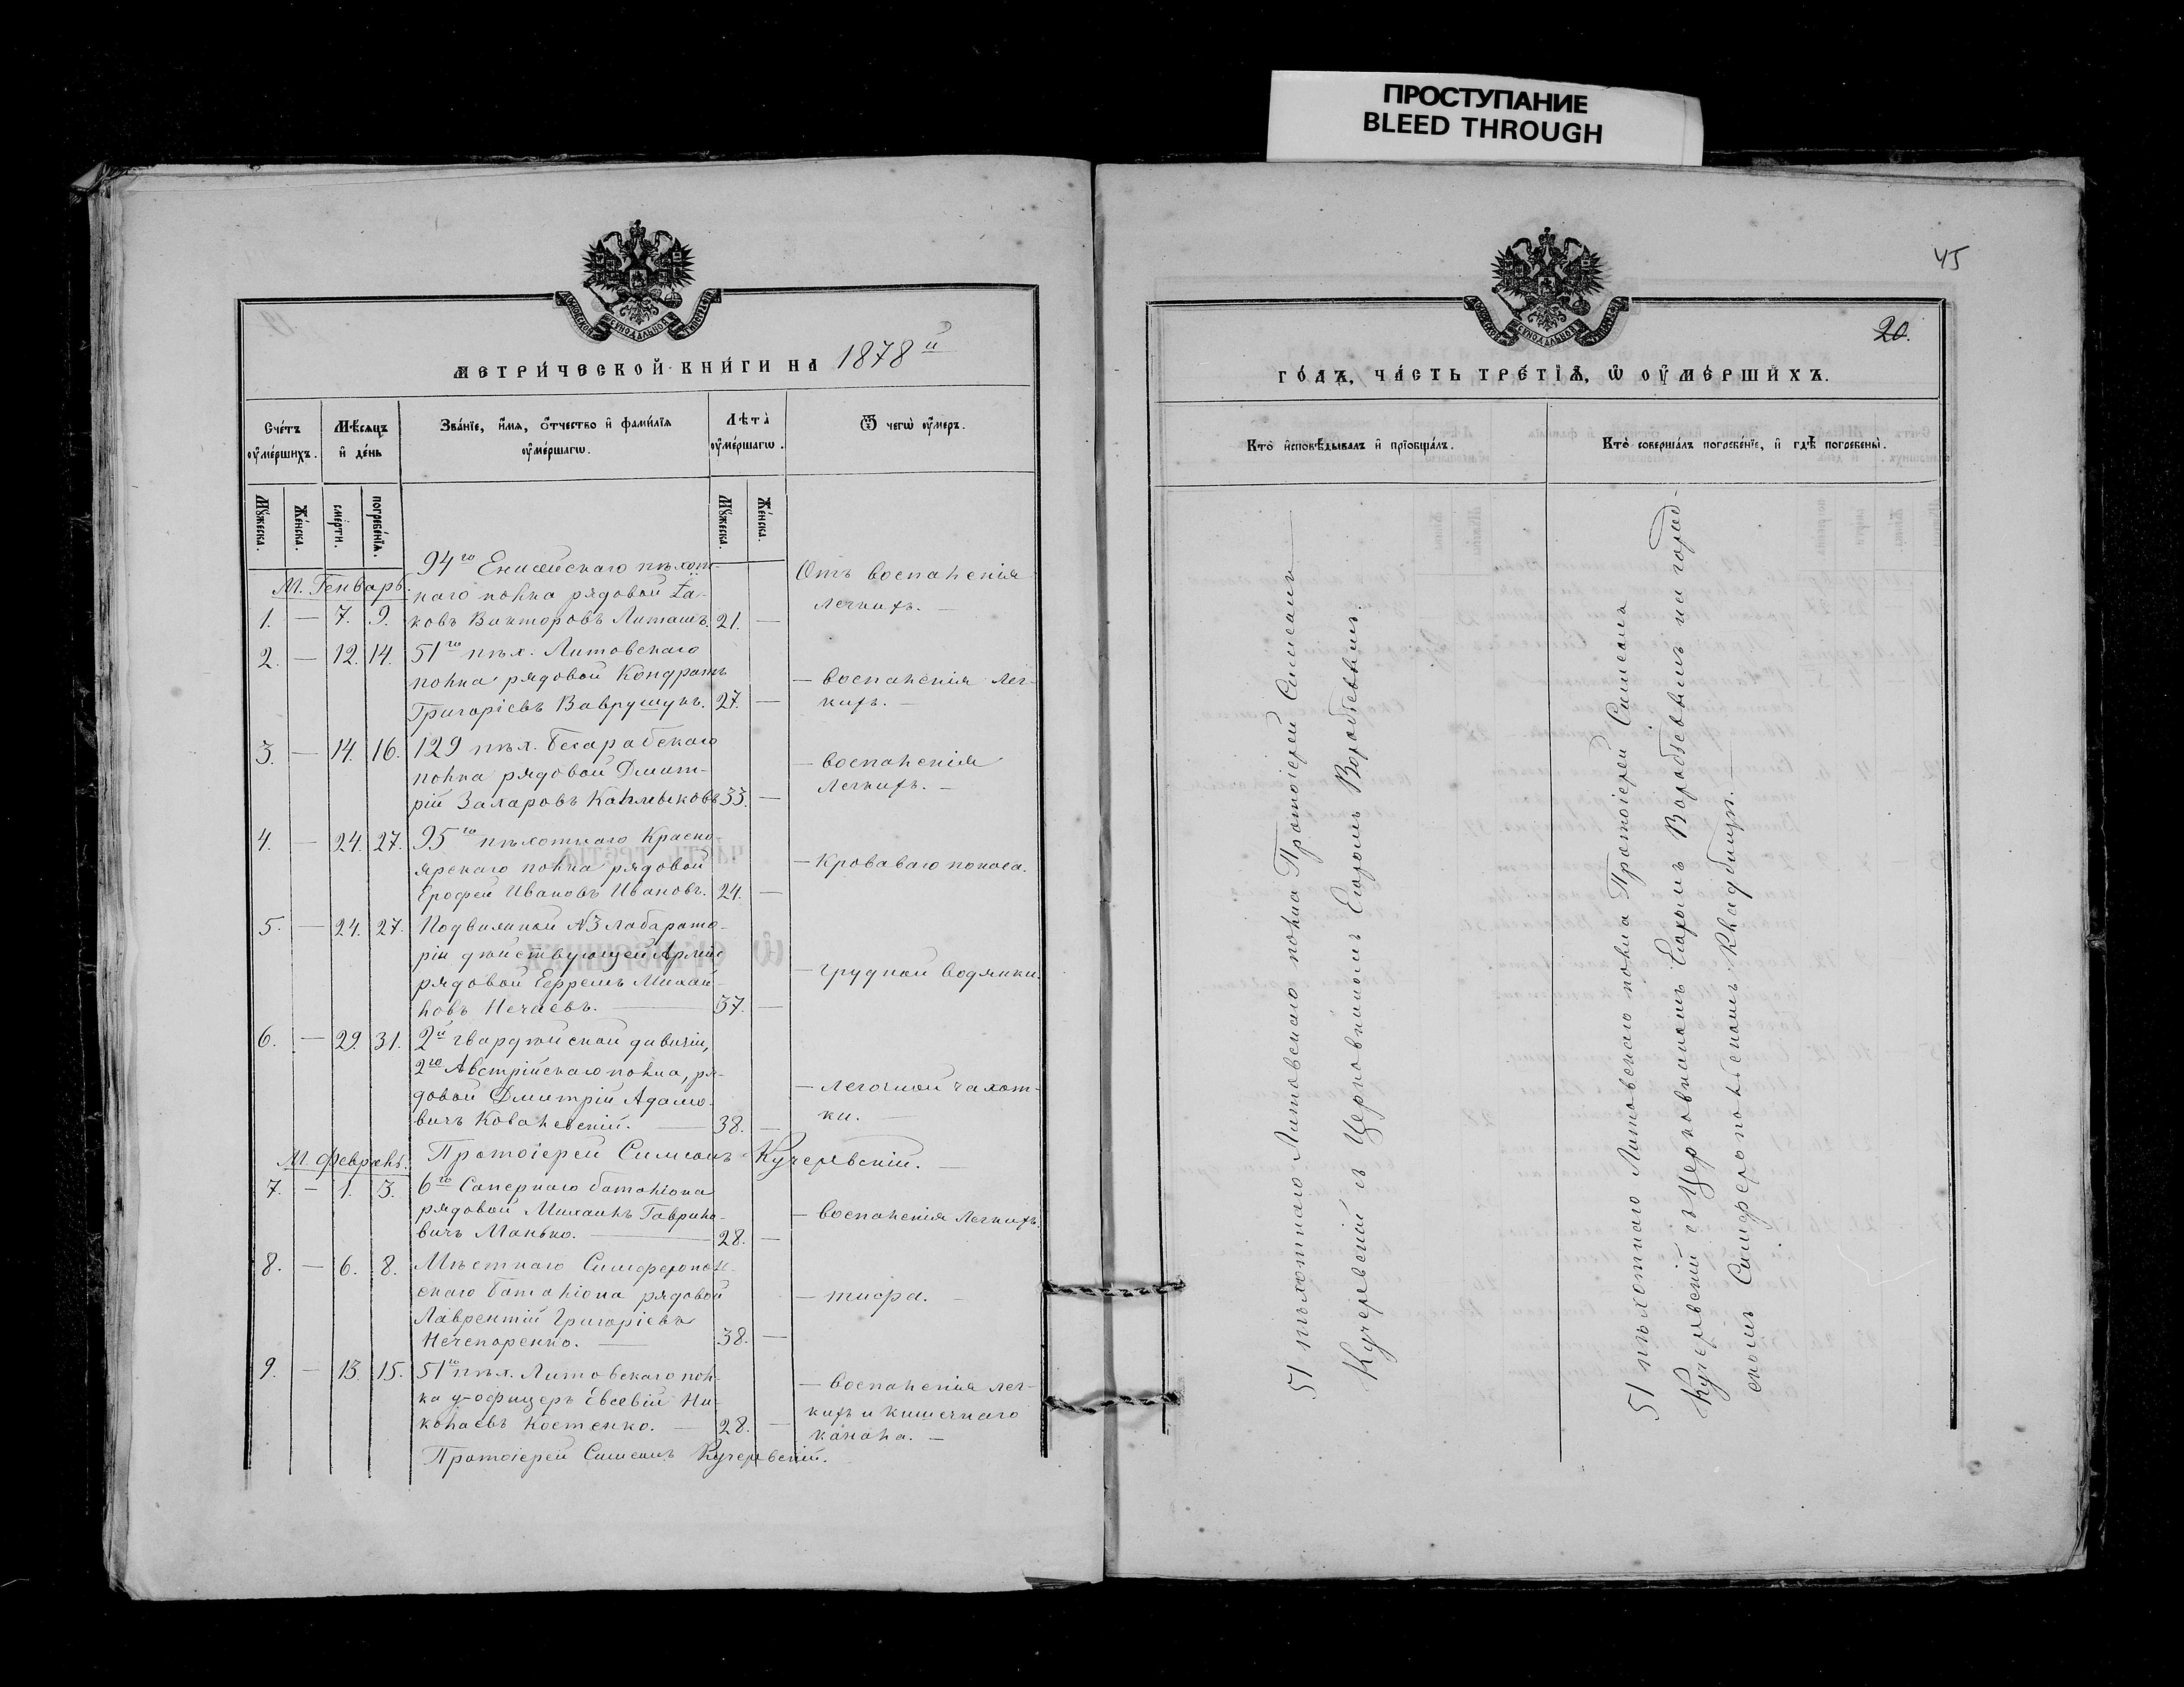 ПРОСТУПАНИЕ
BLEED THROUGH
МОСКОВСКОЙ СѴНОДАЛЬНОЙ ТИПОГРАФІИ
МЕТРИ́ЧЕСКОЙ КНИ́ГИ НА 1878й
Сче́тъ ᲂу҆ме́ршихъ.
Мѣ́сяцъ и҆ де́нь
Зва́нїе, и҆́мя, ѻ҆́тчество и҆ фами́лїя ᲂу҆ме́ршагѡ.
Лѣта̀ ᲂу҆ме́ршагѡ.
Ѿ чегѡ̀ ᲂу҆́меръ.
Мꙋ́жеска.
Же́нска.
сме́рти.
погребе́нїѧ.
Мꙋ́жеска.
Же́нска.
М. Генварь.
94го Енисейскаго пѣхот-
наго полка рядовой Яа-
1. — 7. 9. ковъ Викторовъ Литашъ. 21. —
Отъ воспаленія
легкихъ. —
2. — 12. 14. 51го пѣх. Литовскаго
полка рядовой Кондратъ
Григоріевъ Ваврушукъ. 27. —
— воспаленія лег-
кихъ. —
3. — 14. 16. 129 пѣх. Бесарабскаго
полка рядовой Дмит-
рій Захаровъ 33. —
— воспаленія
легкихъ. —
4. — 24. 27. 95го пѣхотнаго Красно-
ярскаго полка рядовой
Ерофей Ивановъ Ивановъ. 24. —
— Кроваваго поноса.
5. — 24. 27. Подвижной №3 лаборато-
ріи дѣйствующей Арміи
рядовой Ефремъ Михай-
ловъ Нечаевъ. — 37. —
— грудной водянки.
6. — 29. 31. 2й гвардѣйской дивизіи,
2го Австрійскаго полка, ря-
довой Дмитрій Адамо-
вичъ Ковалевскій. — 38. —
— легочной чахот-
ки. —
Протоіерей Симеонъ Кучеревскій. —
М. Февраль.
7. — 1. 3. 6го Сапернаго баталіона
рядовой Михаилъ Гаврило-
вичъ Манько. — 28. —
— воспаленія легкихъ.
8. — 6. 8. Мѣстнаго Симферополь-
скаго баталіона рядовой
Лаврентій Григоріевъ
Нечепоренко. — 38. —
— тифа. —
9. — 13. 15. 51го пѣх. Литовскаго пол-
ка у-офицеръ Евсевій Ни-
колаевъ Костенко. — 28. —
— воспаленія лег-
кихъ и кишечнаго
канала. —
Протоіерей Симеонъ Кучеревскій.
45
20.
МОСКОВСКОЙ СѴНОДАЛЬНОЙ ТИПОГРАФІИ
ГО́ДЪ, ЧА́СТЬ ТРЕ́ТІѦ, Ѡ҆ ОУ҆МЕ́РШИХЪ.
Кто̀ и҆сповѣ́дывалъ и҆ прїѡбща́лъ.
Кто̀ соверша́лъ погребе́нїе, и҆ гдѣ̀ погребены̀.
51 пѣхотнаго Литовскаго полка Протоіерей Симеонъ
Кучеревскій съ Церковникомъ Егоромъ Воробьевымъ.
51 пѣхотнаго Литовскаго полка Протоіерей Симеонъ
Кучеревскій съ Церковникомъ Егоромъ Воробьевымъ на город-
скомъ Симферопольскомъ Кладбищѣ. —